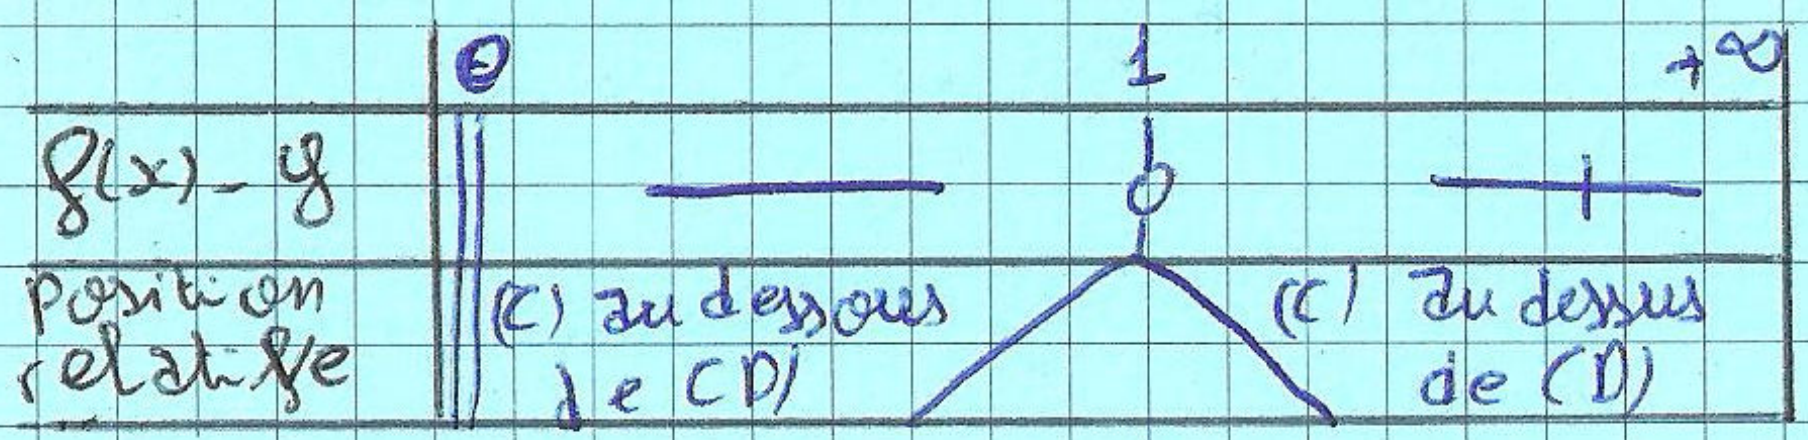 0 1 +∞
f(x) - y — 0 +
position relative
(C) au dessous de (D)
(C) au dessus de (D)